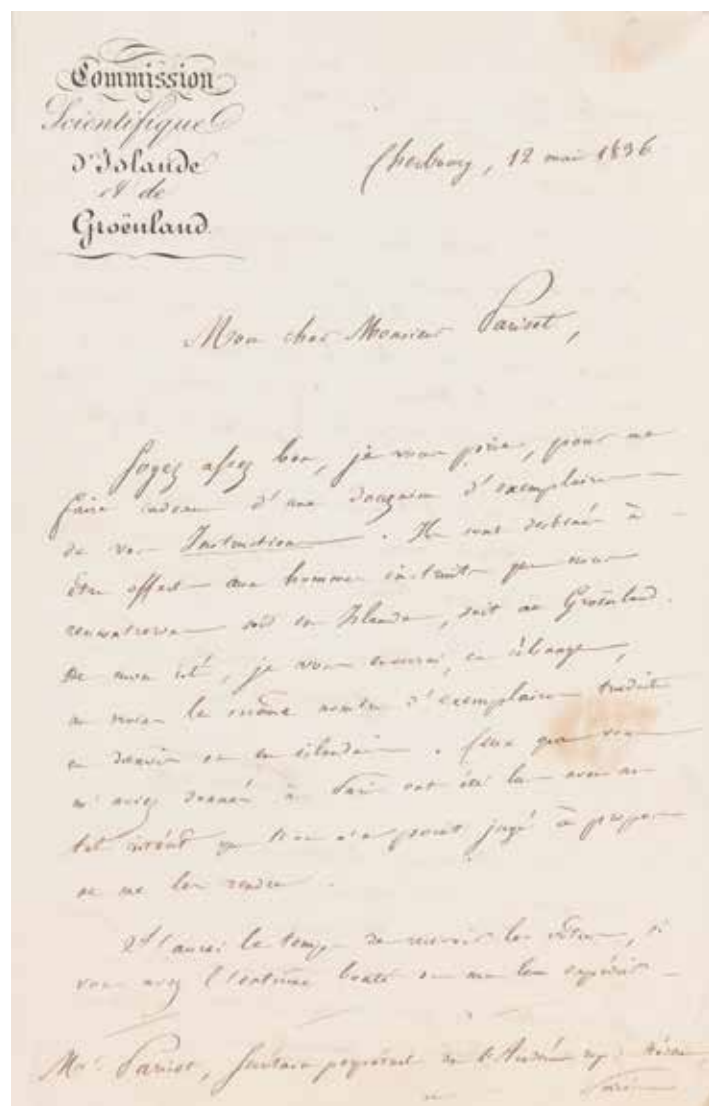 Commission
Scientifique
d'Islande
et de
Groënland.
Cherbourg, 12 mai 1836
Mon cher Monsieur Pariset,
Soyez assez bon, je vous prie, pour me
faire cadeau d'une douzaine d'exemplaires
de vos Instructions. Ils sont destinés à
être offerts aux hommes instruits que nous
rencontrerons soit en Islande, soit au Groënland.
De mon côté, je vous enverrai, en échange,
au moins le même nombre d'exemplaires traduits
en danois ou en islandais. Ceux que vous
m'aviez donnés à Paris ont été lus avec un
tel intérêt qu'on n'a point jugé à propos
de me les rendre.
J'aurai le temps de recevoir les vôtres, si
vous avez l'extrême bonté de me les expédier
Mr. Pariset, Secrétaire perpétuel de l'Académie roy. Médecine
Paris